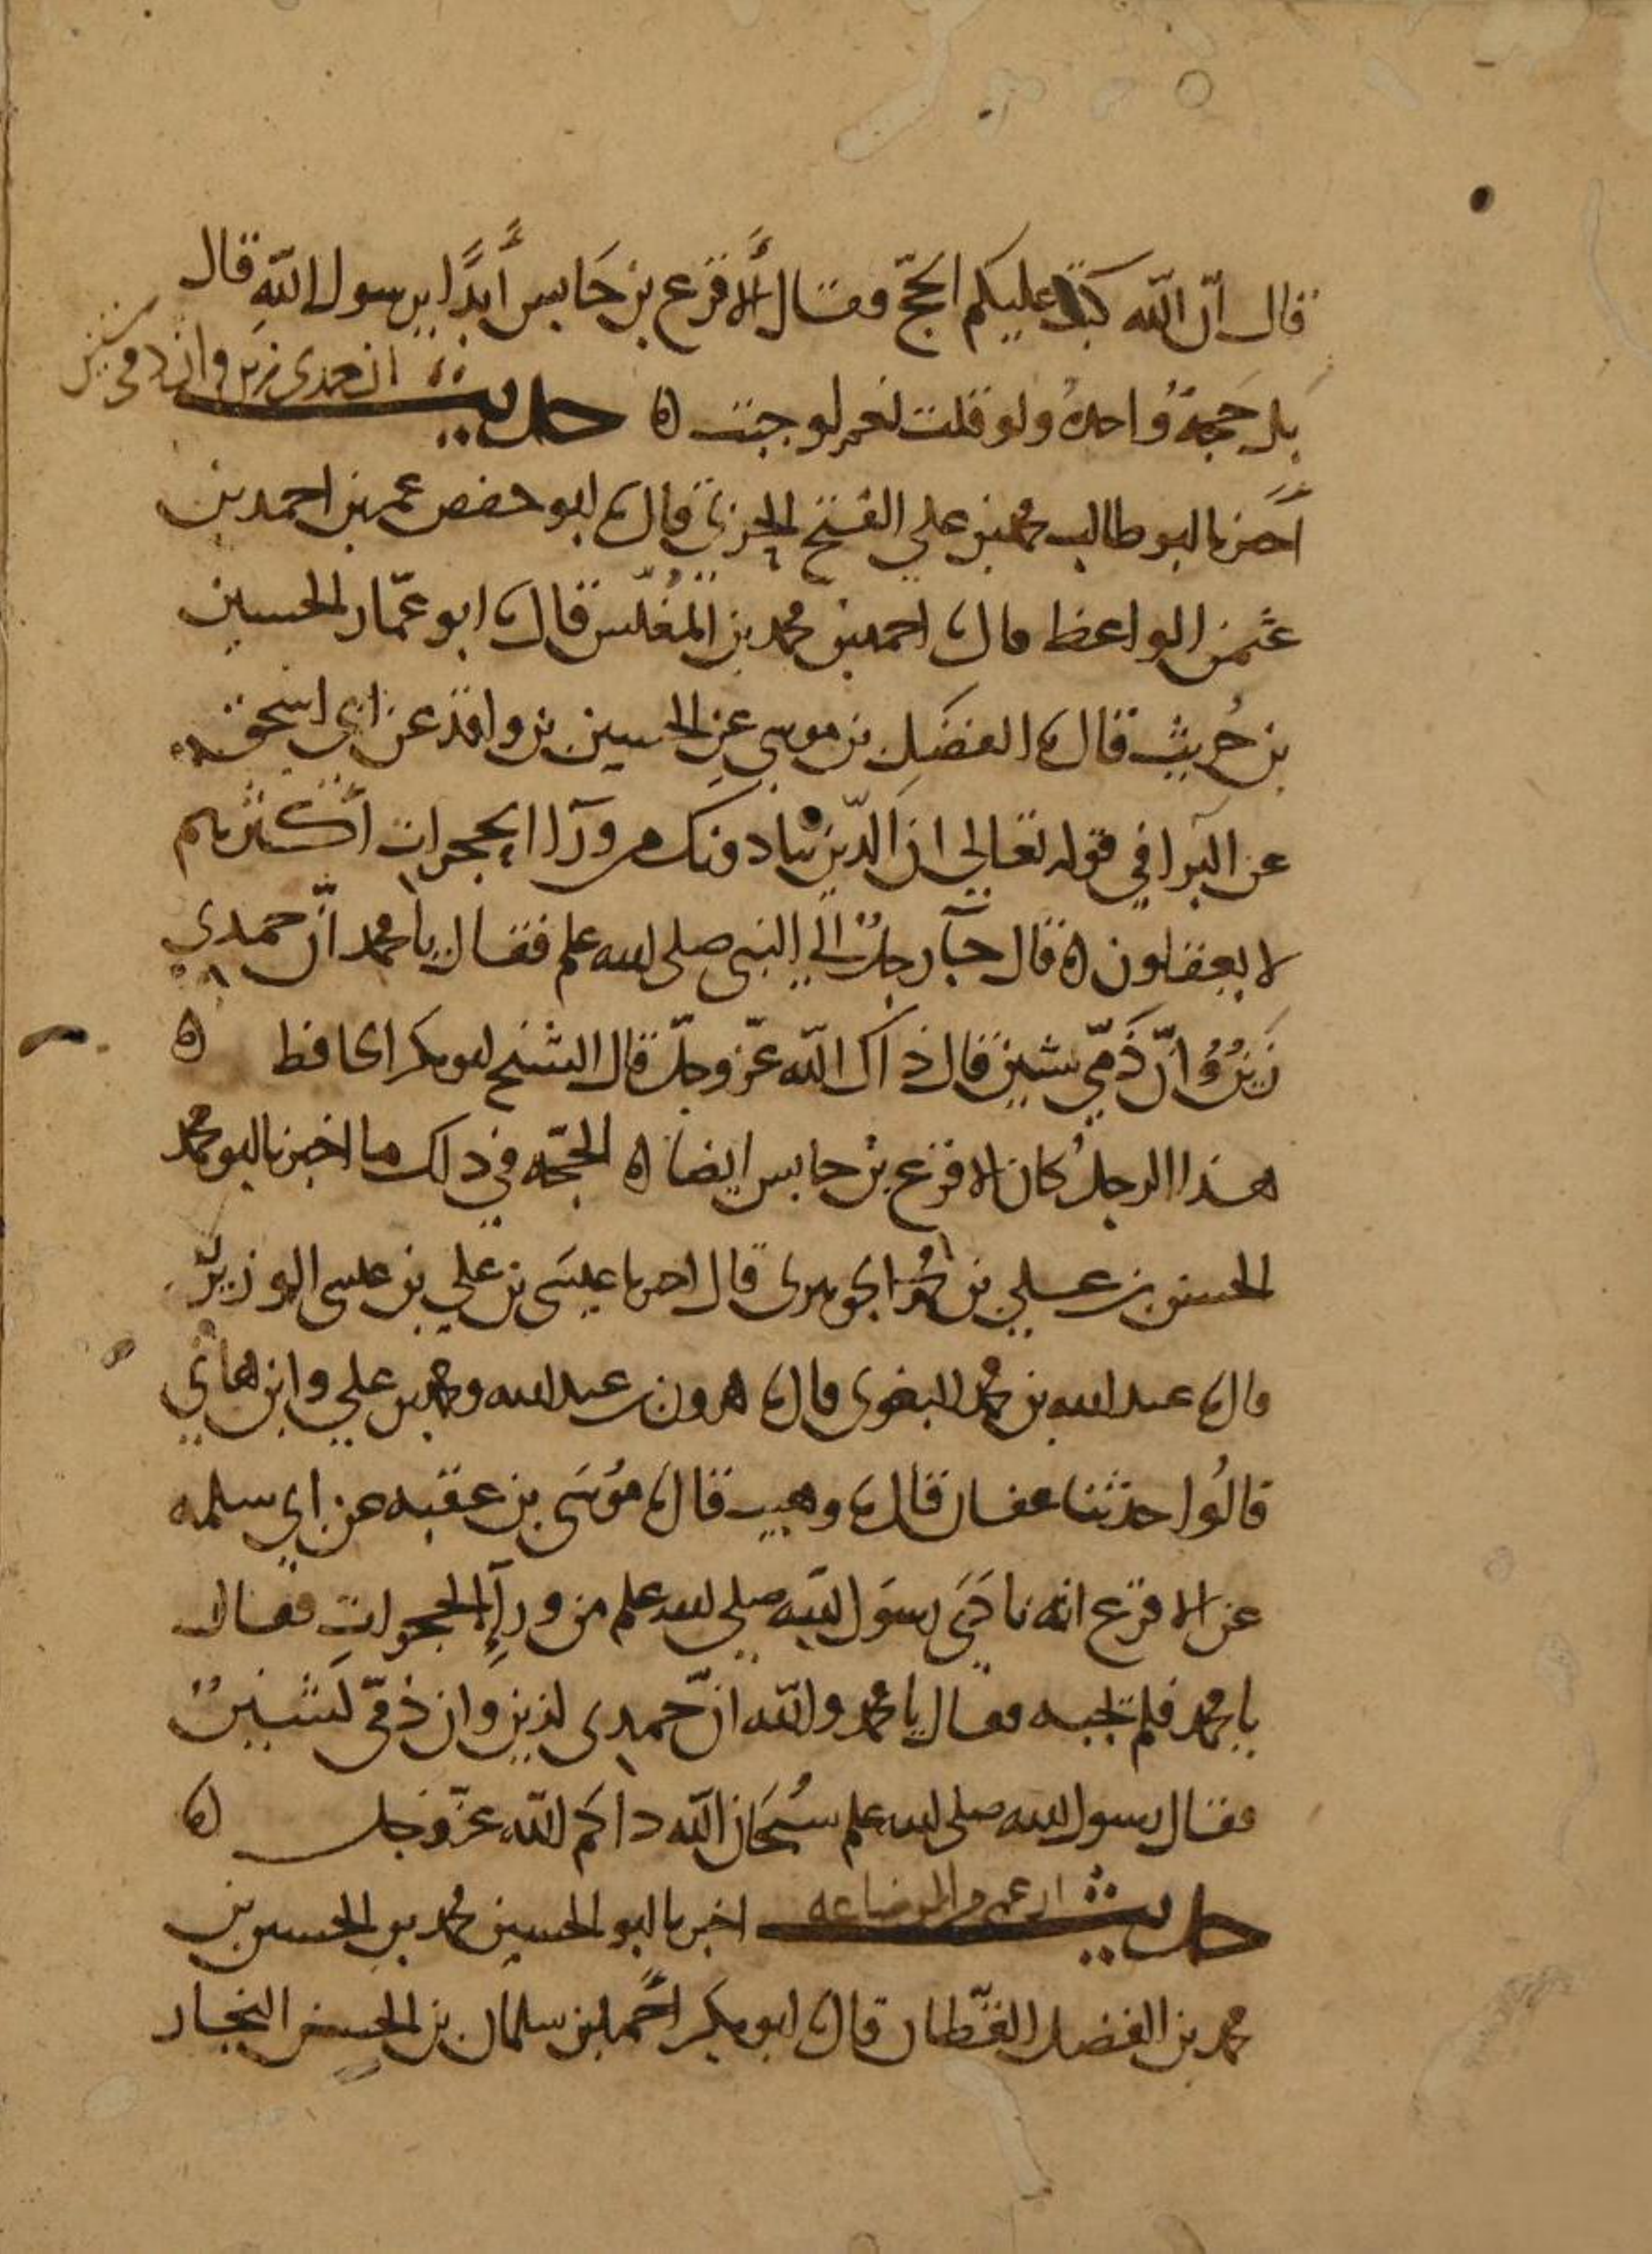 قال انّ الله كتب عليكم الحجّ فقال الأقرع بن حابس أبدًا يرسول الله قال
بل حجة واحدة ولو قلت نعم لوجبت ه حديث ان حمدي زين وان ذمي شين
اخبرنا ابو طالب محمد بن علي الفتح الحربي قال نا ابو حفص عمر بن احمد بن
عثمن الواعظ قال نا احمد بن محمد بن المغلّس قال نا ابو عمّار الحسين
بن حُريث قال نا الفضل بن موسى عن الحسين بن واقد عن ابي اسحق
عن البرا في قوله تعالى ان الذين ينادونك من ورآا الحجرات أكثرهم
لا يعقلون ه قال جآ رجلٌ الى النبي صلى الله علم فقال يا محمد انّ حمدي
زينٌ وانّ ذمّي شين قال ذاك الله عزّ وجلّ قال الشيخ ابو بكر الحافظ ه
هذا الرجل كان الاقرع بن حابس ايضا ه الحجّه في ذلك ما اخبرنا ابو محمد
الحسن بن علي بن محمد الجوهري قال اخبرنا عيسى بن علي بن عيسى الوزير
قال نا عبد الله بن محمد البغوي قال نا هرون بن عبد الله ومحمد بن علي وابن هاني
قالُوا حدثنا عفان قال نا وهيب قال نا موسى بن عقبه عن ابي سلمه
عن الاقرع انه نادى رسول الله صلى الله علم من ورآإ الحجرات فقال
يا محمد فلم يجبه فقال يا محمد والله انّ حمدي لزين وان ذمّي لشين
فقال رسول الله صلى الله علم سُبحان الله ذاكم الله عزّ وجل ه
حديث اخبرنا ابو الحسين محمد بن الحسين بن
محمد بن الفضل القطّان قال نا ابو بكر احمد بن سلمان بن الحسن النجاد